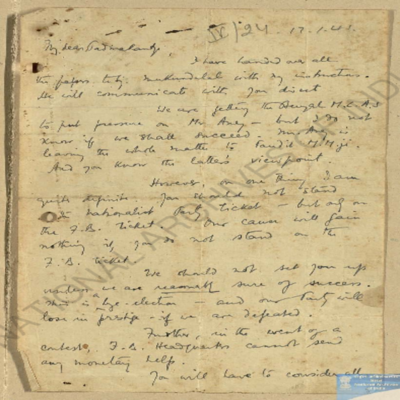 IV/24 17.1.41
My dear Padmakanta,
I have handed over all
the papers to Sj. Mukundalal with my instructions.
He will communicate with you direct.
We are getting the Bengal M.L.A.s
to put pressure on Mr Aney — but I do not
know if we shall succeed. Mr Aney is
leaving the whole matter to Pandit M.M.ji.
And you know the latter's viewpoint.
However, on one thing I am
quite definite. You should not stand
on nationalist party ticket — but only on
the F.B. ticket. Our cause will gain
nothing if you do not stand on the
F.B. ticket.
We should not set you up
unless we are reasonably sure of success.
This is a bye-election — and our Party will
lose in prestige if we are defeated.
Further, in the event of a
contest, F.B. Headquarters cannot send
any monetary help.
You will have to consider all
NATIONAL ARCHIVES OF IND